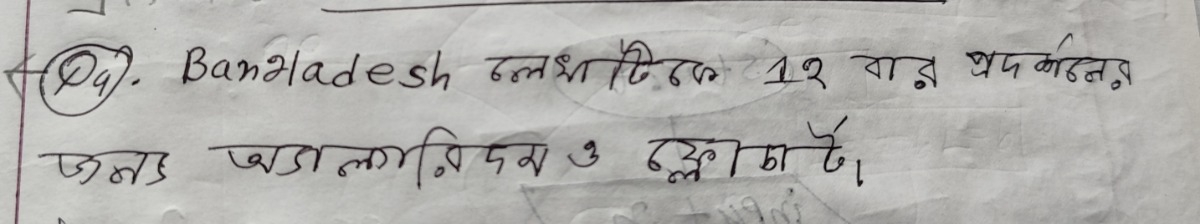 24. Bangladesh লেখাটিকে 12 বার প্রদর্শনের
জন্য অ্যালগরিদম ও ফ্লোচার্ট।